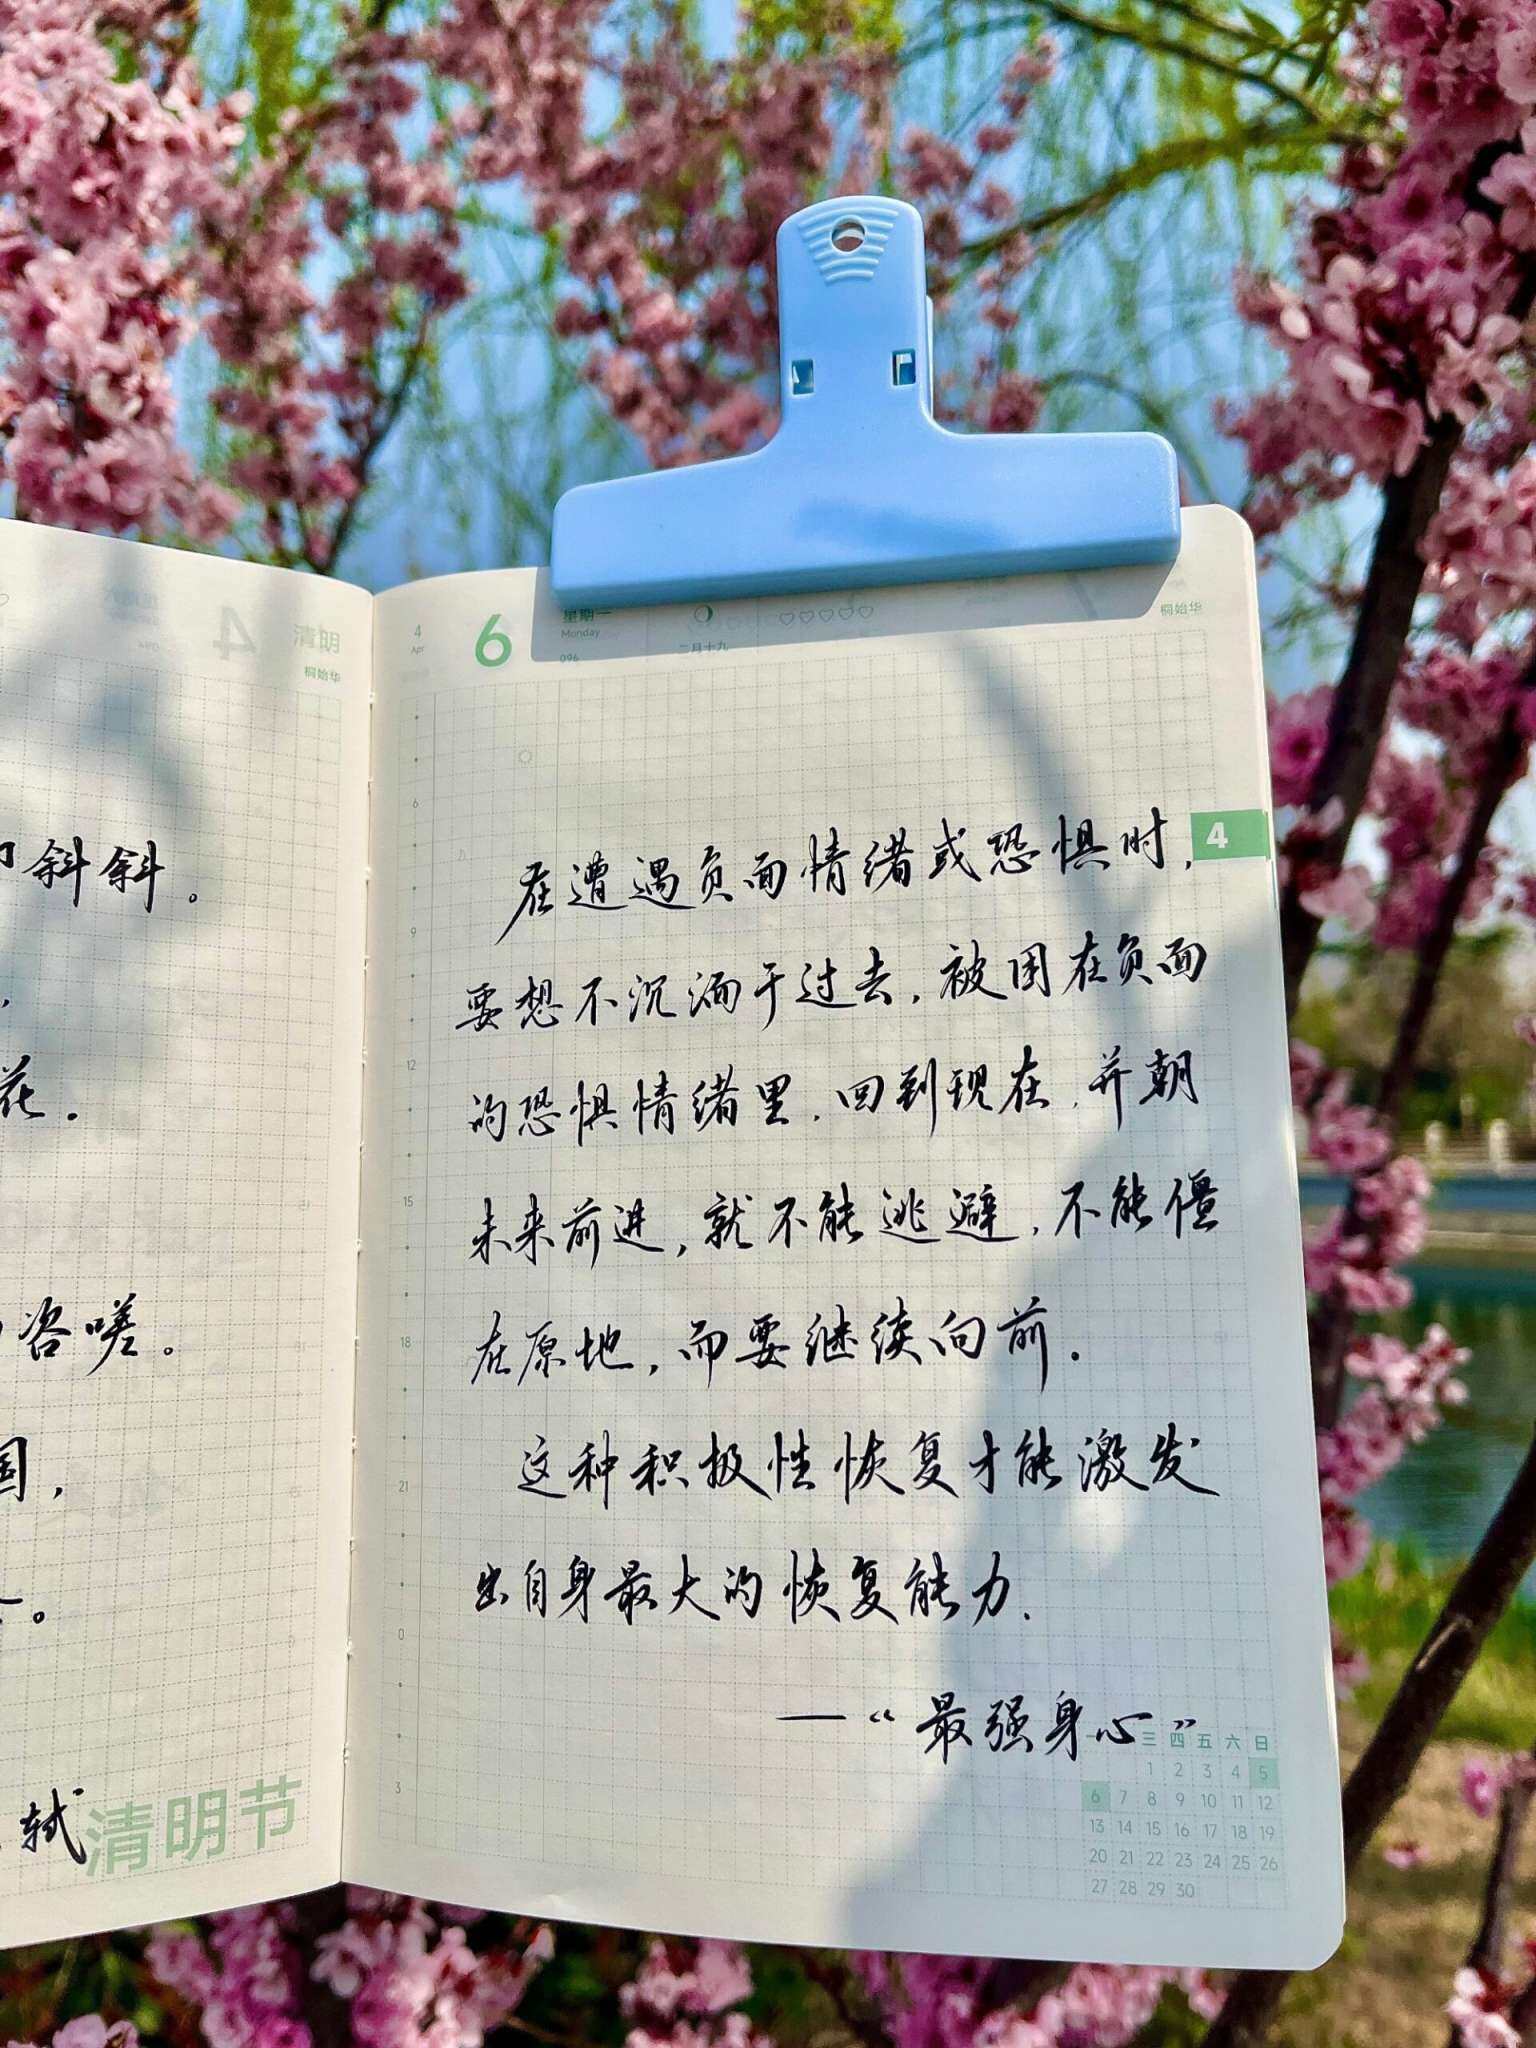 清明
4
桐始华
斜斜。
花.
咨嗟。
国,
轼
清明节
4
Apr
6
星期一
Monday
096
二月十九
桐始华
4
6
9
12
15
18
21
0
3
在遭遇负面情绪或恐惧时,
要想不沉湎于过去,被困在负面
的恐惧情绪里,回到现在,并朝
未来前进,就不能逃避,不能僵
在原地,而要继续向前.
这种积极性恢复才能激发
出自身最大的恢复能力.
—“最强身心”
三 四 五 六 日
1 2 3 4 5
6 7 8 9 10 11 12
13 14 15 16 17 18 19
20 21 22 23 24 25 26
27 28 29 30